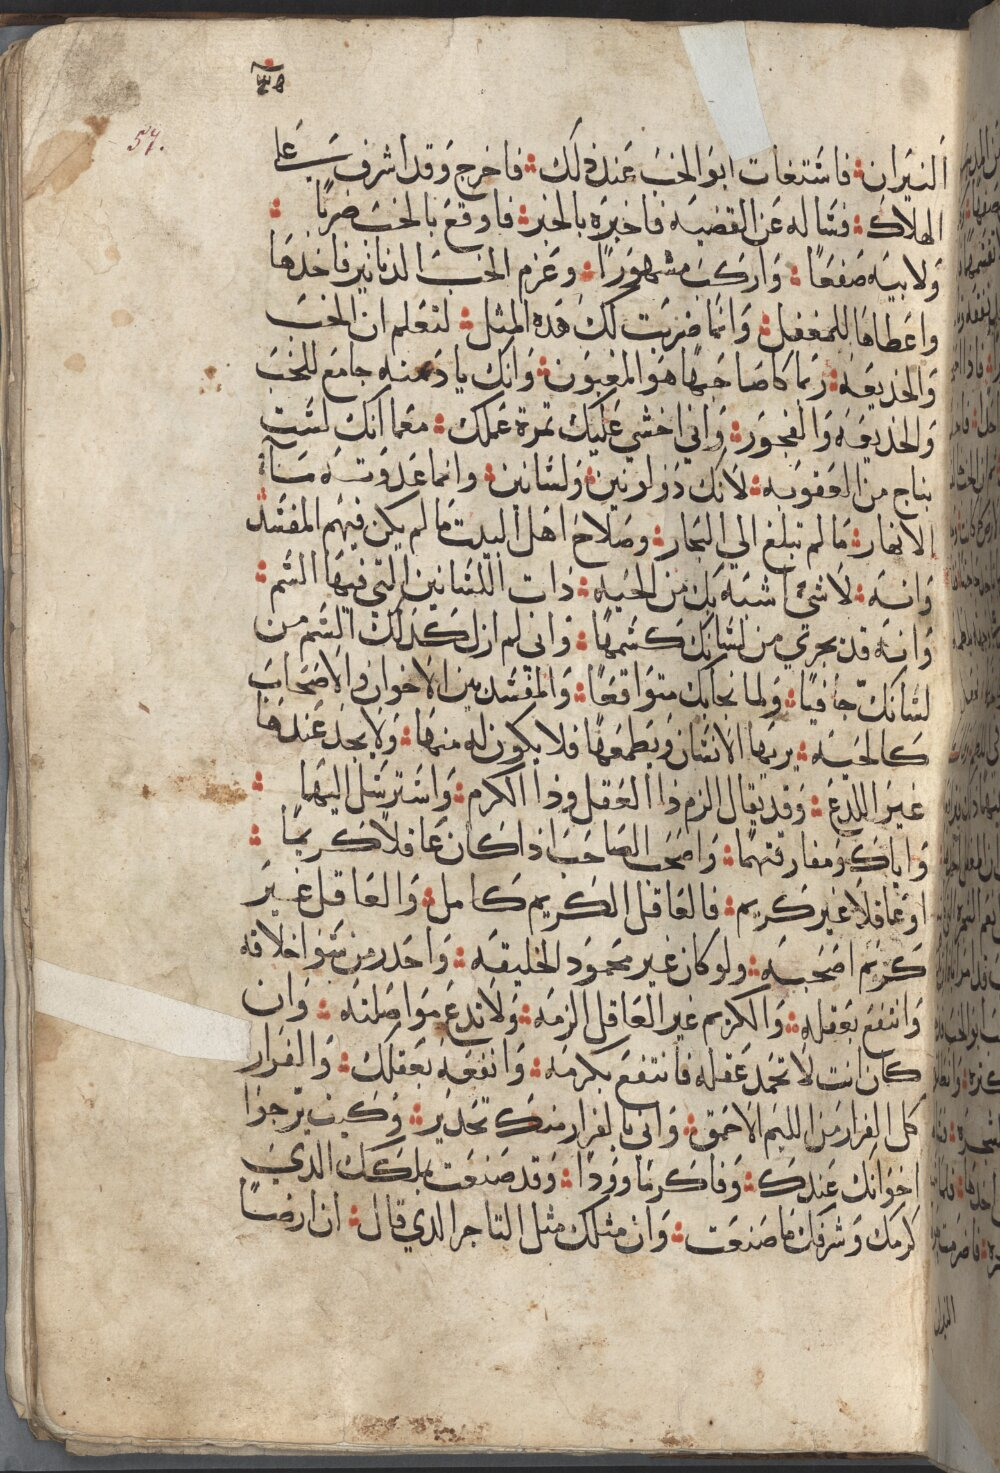 57.
النيران فاستغاث ابو الخب عند ذلك فاخرج وقد اشرف على
الهلاك فساله عن القضيه فاخبره بالخبر فاوقع بالخب ضربًا
ولابيه صفعًا واركب مشهورًا وغرم الخب الدنانير فاخدها
واعطاها للمغفل وانما ضربت لك هده المثل لتعلم ان الخب
والخديعه ربما كا صاحبها هو المغبون وانك يا دمنه جامع للخب
والخديعه والفجور واني اخشي عليك تمرة عملك معما انك لست
بناج من العقوبه لانك دو لونين ولسانين وانما عدوته
الانهار ما لم تبلغ الي البحار وصلاح اهل البيت ما لم يكن فيهم المفسد
وانه لا شئ اشبه بك من الحيه دات اللسانين التي فيها السم
وانه قد يجري من لسانك كسمها واني لم ازل كدلك السم من
لسانك خافيًا ولما يحل بك متواقعًا والمفسد بين الاخوان والاصحاب
كالحيه يربيها الانسان ويطعمها فلا يكون له منها ولا يجد عندها
غير اللدغ وقد يقال الزم ذا العقل وذا الكرم واسترسل اليهما
واياك ومفارقتهما واصحب الصاحب اذا كان عاقلًا كريمًا
او عاقلًا غير كريم فالعاقل الكريم كامل والعاقل غير
كريم اصحبه ولو كان غير محمود الخليقه واحدر من سو اخلاقه
وانتفع بعقله والكريم غير العاقل الزمه ولا تدع مواصلته وان
كان انت لا تحمد عقله فانتفع بكرمه وانفعه بعقلك والفرار
كل الفرار من الليم الاحمق واني بالفرار منك تحدير وكيف يرجوا
اخوانك عندك وفاكرما وودًا وقد صنعت بملكك الدي
كرمك وشرفك ما صنعت وان مثلك مثل التاجر الدي قال ان ارضًا